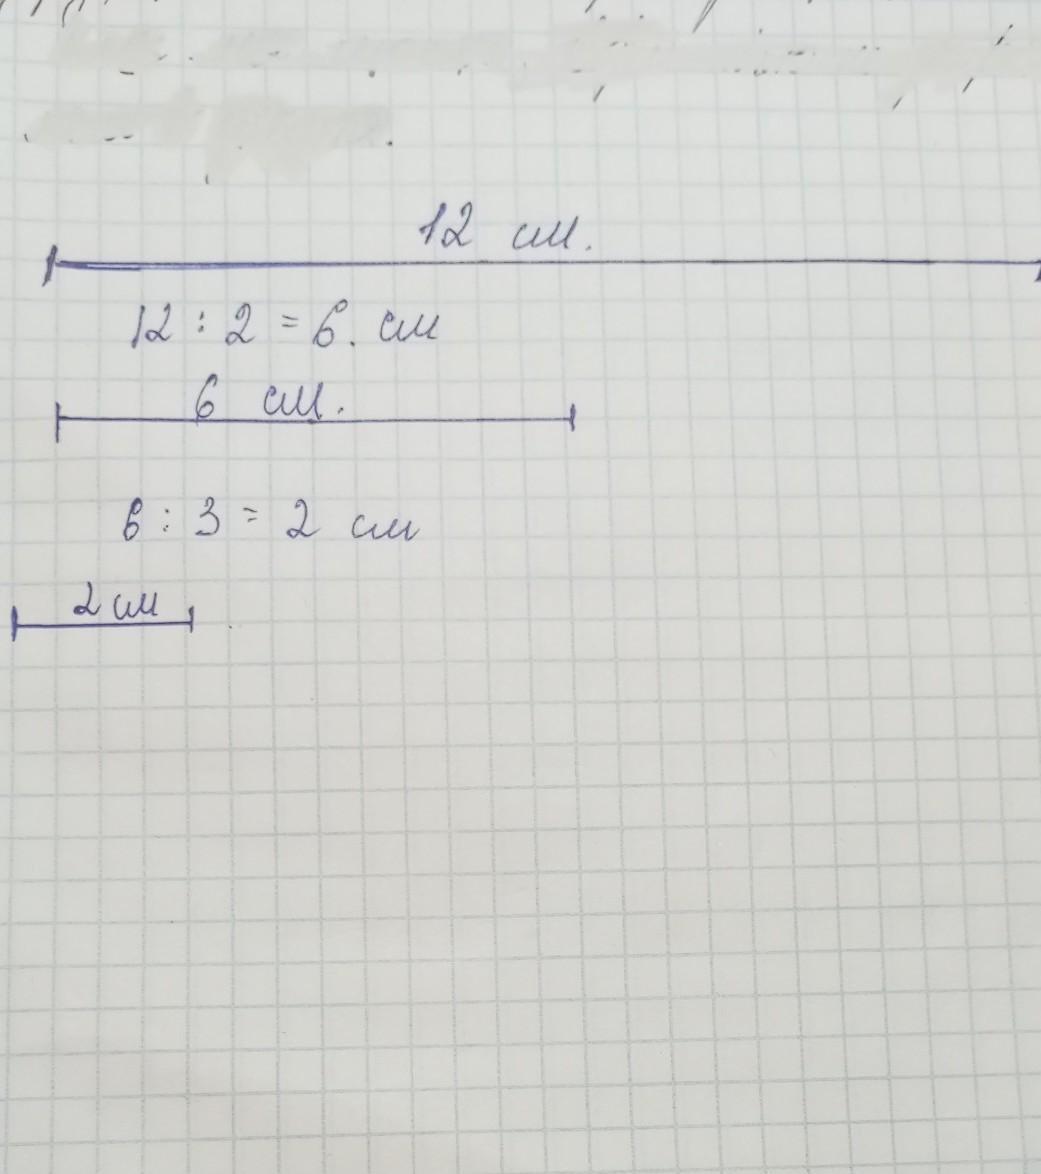 12 см.
12 : 2 = 6. см
6 см.
6 : 3 = 2 см
2 см